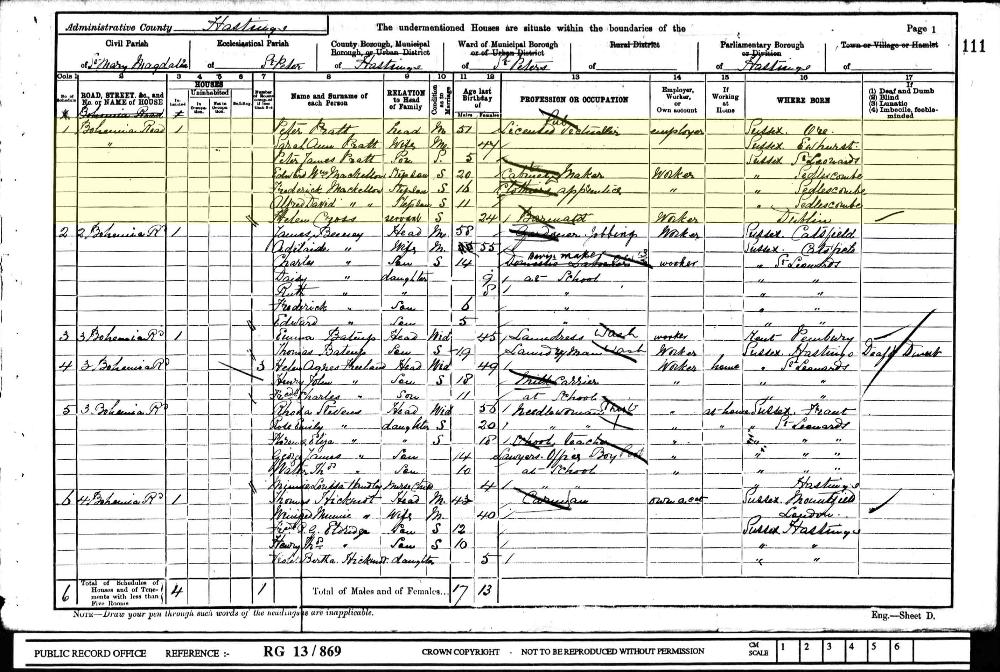 Administrative County Hastings
The undermentioned Houses are situate within the boundaries of the
Page 1
111
Civil Parish
of St Mary Magdalen
Ecclesiastical Parish
of St Peter
County Borough, Municipal Borough, or Urban District
of Hastings
Ward of Municipal Borough or of Urban District
of St Peters
Rural District
of
Parliamentary Borough or Division
of Hastings
Town or Village or Hamlet
of
Cols 1 2 3 4 5 6 7 8 9 10 11 12 13 14 15 16 17
No. of Schedule
ROAD, STREET, &c., and No. or NAME of HOUSE
HOUSES
Inhabited
Uninhabited
In Occupation
Not in Occupation
Building
Name and Surname of each Person
RELATION to Head of Family
Condition as to Marriage
Age last Birthday of
Males Females
PROFESSION OR OCCUPATION
Employer, Worker, or Own account
If Working at Home
WHERE BORN
(1) Deaf and Dumb
(2) Blind
(3) Lunatic
(4) Imbecile, feeble-minded
Bohemia Road
1 Bohemia Road 1 Peter Pratt head M 51 Licensed Victualler Pub employer Sussex Ore
" Sarah Ann Pratt Wife M 47 Sussex Ewhurst
Peter James Pratt Son S 5 Sussex St Leonards
Edward Wm Mackellow Stepson S 20 Cabinet Maker Worker " Sedlescombe
Frederick Mackellow Stepson S 16 apprentice " " Sedlescombe
Alfred David " " Stepson S 11 " Sedlescombe
Helen Cross servant S 24 Barmaid Worker Dublin
2 2, Bohemia Rd 1 James Beeney Head M 58 Gardener Jobbing Worker Sussex Catsfield
Adelaide " Wife M 55 Sussex
Charles " Son S 14 Domestic worker " St Leonards
Daisy " daughter 9 at School " "
Ruth " " 8 " " "
Frederick " Son 6
Edward " Son 5 " " "
3 3 Bohemia Rd 1 Emma Batsup Head Wid 45 Laundress Wash worker Kent Pembury
Thomas Batsup Son S 19 Laundryman Wash Worker Sussex Hastings Deaf & Dumb
4 3, Bohemia Rd 3 Helen Agnes Freeland Head Wid 49 Worker home " St Leonards
Henry John " Son S 18 Milk Carrier " " "
Charles " Son 11 at School " "
5 3. Bohemia Rd Rhoda Stevens Head Wid 56 Needlewoman " at home Sussex Frant
Rose Emily " daughter S 20 " " " St Leonards
Florence Eliza " " S 18 School teacher " " "
George James " Son 14 Lawyers Office Boy " " "
Walter Thos " Son 10 at School " "
Minnie Louisa Nurse Child 4 " Hastings
6 4 Bohemia Rd 1 Thomas Hickmott Head M 43 Carman own acct Sussex Mountfield
Minnie " Wife M 40 London
Eldridge Son S 12 Sussex Hastings
Henry Thos " Son S 10 " "
Violet Bertha Hickmott daughter 5 " "
6 Total of Schedules of Houses and of Tenements with less than Five Rooms 4 1 Total of Males and of Females... 17 13
NOTE—Draw your pen through such words of the headings as are inappropriate.
Eng.—Sheet D.
PUBLIC RECORD OFFICE REFERENCE :- RG 13/869 CROWN COPYRIGHT - NOT TO BE REPRODUCED WITHOUT PERMISSION CM SCALE 1 2 3 4 5 6